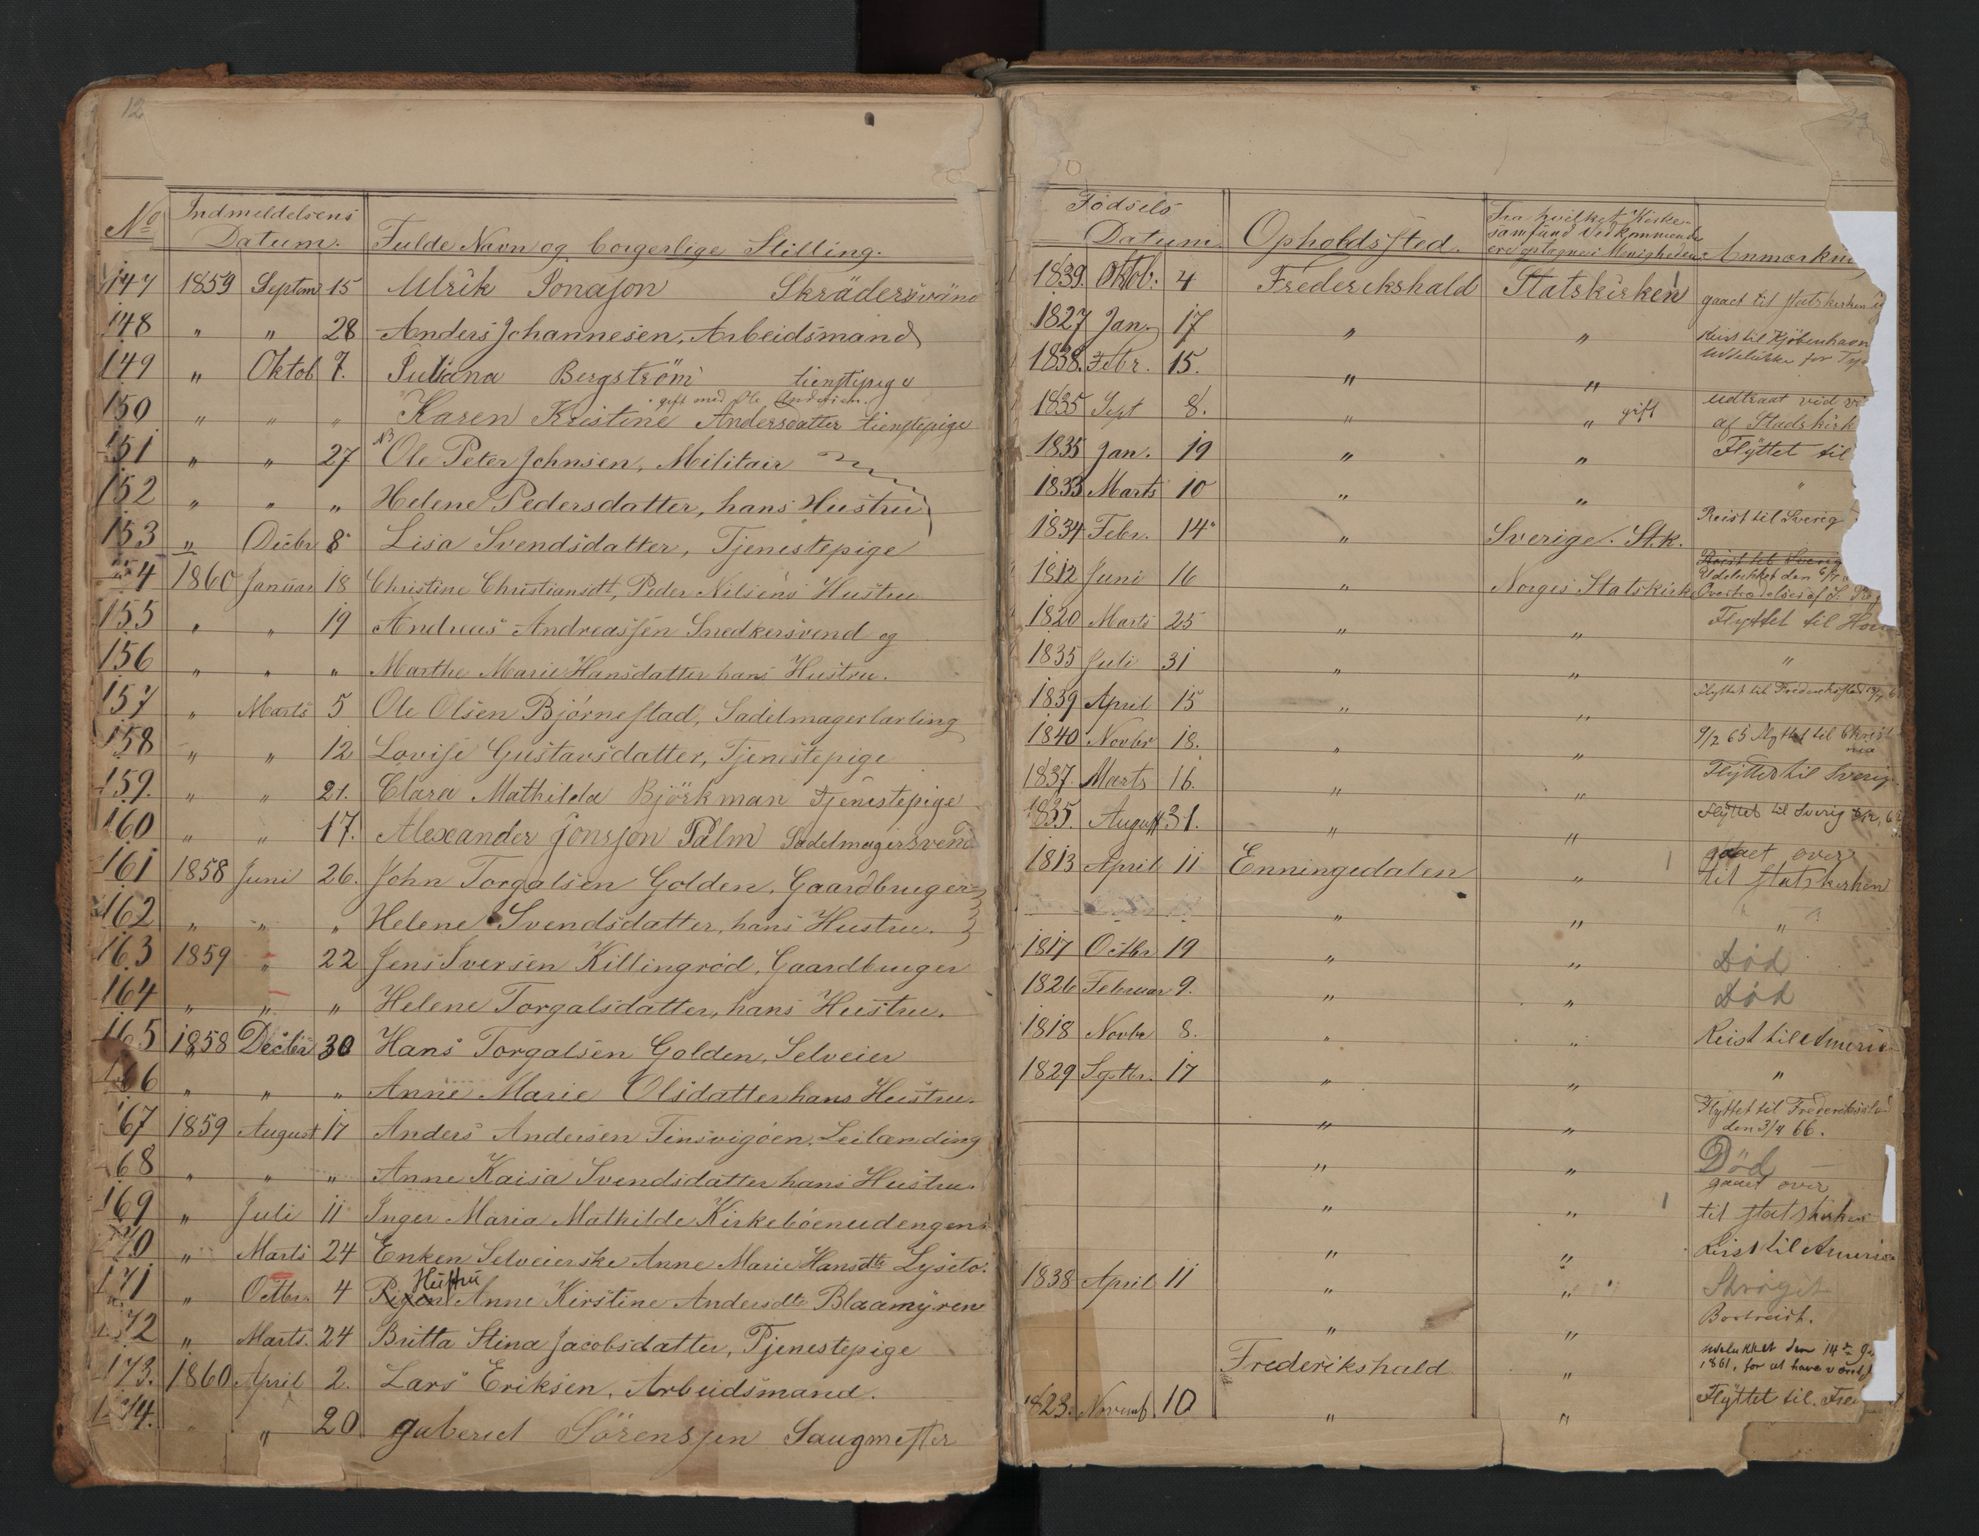 12
No Indmeldelsens Datum. Fulde Navn og borgerlige Stilling.
147 1859 Septem 15 Ulrik Jonasson Skrädersvänd
148 " " 28 Anders Johannesen, Arbeidsmand
149 " Oktob 7. Juliana Bergström tienstepige
gift med Ole Andersen.
150 " " " Karen Kristine Andersdatter tienstepige
151 " " 27 Ole Peter Johnsen, Militair
152 " " " Helene Pedersdatter, hans Hustru
153 " Decbr 8 Lisa Svendsdatter, Tjenestepige
154 1860 Januar 18 Christine Christiansdt, Peder Nilsens Hustru
155 " " 19 Andreas Andreassen Snedkersvend og
156 " " " Marthe Marie Hansdatter hans Hustru.
157 " Marts 5 Ole Olsen Bjørnestad, Sadelmagerlærling
158 " " 12 Lovise Gustavsdatter, Tjenestepige
159. " " 21. Clara Mathilda Björkman tjenestepige
160 " " 17. Alexander Jonsson Palm Sadelmagersvend
161 1858 Juni 26. John Torgalsen Golden, Gaardbruger
162 " " " Helene Svendsdatter, hans Hustru.
163 1859 " 22 Jens Iversen Killingrød, Gaardbruger
164 " " " Helene Torgalsdatter, hans Hustru.
165 1858 Decbr 30 Hans Torgalsen Golden, Selveier
166 " " " Anne Marie Olsdatter hans Hustru.
167 1859 August 17 Anders Andersen Tinsvigöen. Leilænding
168 " " " Anne Kaisa Svendsdatter hans Hustru.
169 " Juli 11 Inger Maria Mathilde Kirkebøenudengens
170 " Marts 24 Enken Selveierske Anne Marie Hansdtr Lyseto.
Hustru
171 " Octbr. 4 Anne Kirstine Andersdtr Blaamyren
172 " Marts. 24 Britta Stina Jacobsdatter, Tjenestepige
173. 1860 April 2. Lars Eriksen, Arbeidsmand.
174. " 20 gaberiel Sörenssen Saugmester
Fødsels Datum. Opholdssted. Fra hvilket Kirkesamfund Vedkommende ere optagne i Menigheden Anmærkni
1839. Oktob. 4 Frederikshald Statskirken gaaet til statskirken
1827 Jan. 17 " " Reist til Kjøbenhavn
1838. Febr. 15. " " udelukke for
1835 Sept 8. " " gift udtraat ved
af Stadskirk
1835 Jan. 19 " " Flÿttet til
1833 Marts 10 " " "
1834 Febr. 14 " Sverige. St.k. Reist til Sverig
1812 Juni 16 " Norges Statskirke Reist til Sverig
Udelukket den
Overtrædelse af
1820 Marts 25 " " Flyttet til
1835 Juli 31 " " "
1839 April 15 " " Flyttet til Frederiksstad
1840 Novbr 18. " " 9/2 65 Flyttet til Christ
nia
1837. Marts 16. " " Flyttet til Sverig
1835. August 31. " " Flÿttet til Sverig
1813 April 11 Enningedalen " gaaet over
til statskirken
" " "
1817 Octbr 19 " " Död
1826 Februar 9. " " Död
1818 Novbr 8. " " Reist til Ameri
1829 Septbr. 17 " " "
" " Flyttet til Frederiksstad
den 3/4 66.
" " Død
" " gaaet over
til statskirken
" " Reist til Ameri
1838 April 11 " " Strøget
" " Bortreist.
Frederikshald " udelukket den 14de
1861, for at have
1823. Novemb 10 " " Flÿttet til. Fre